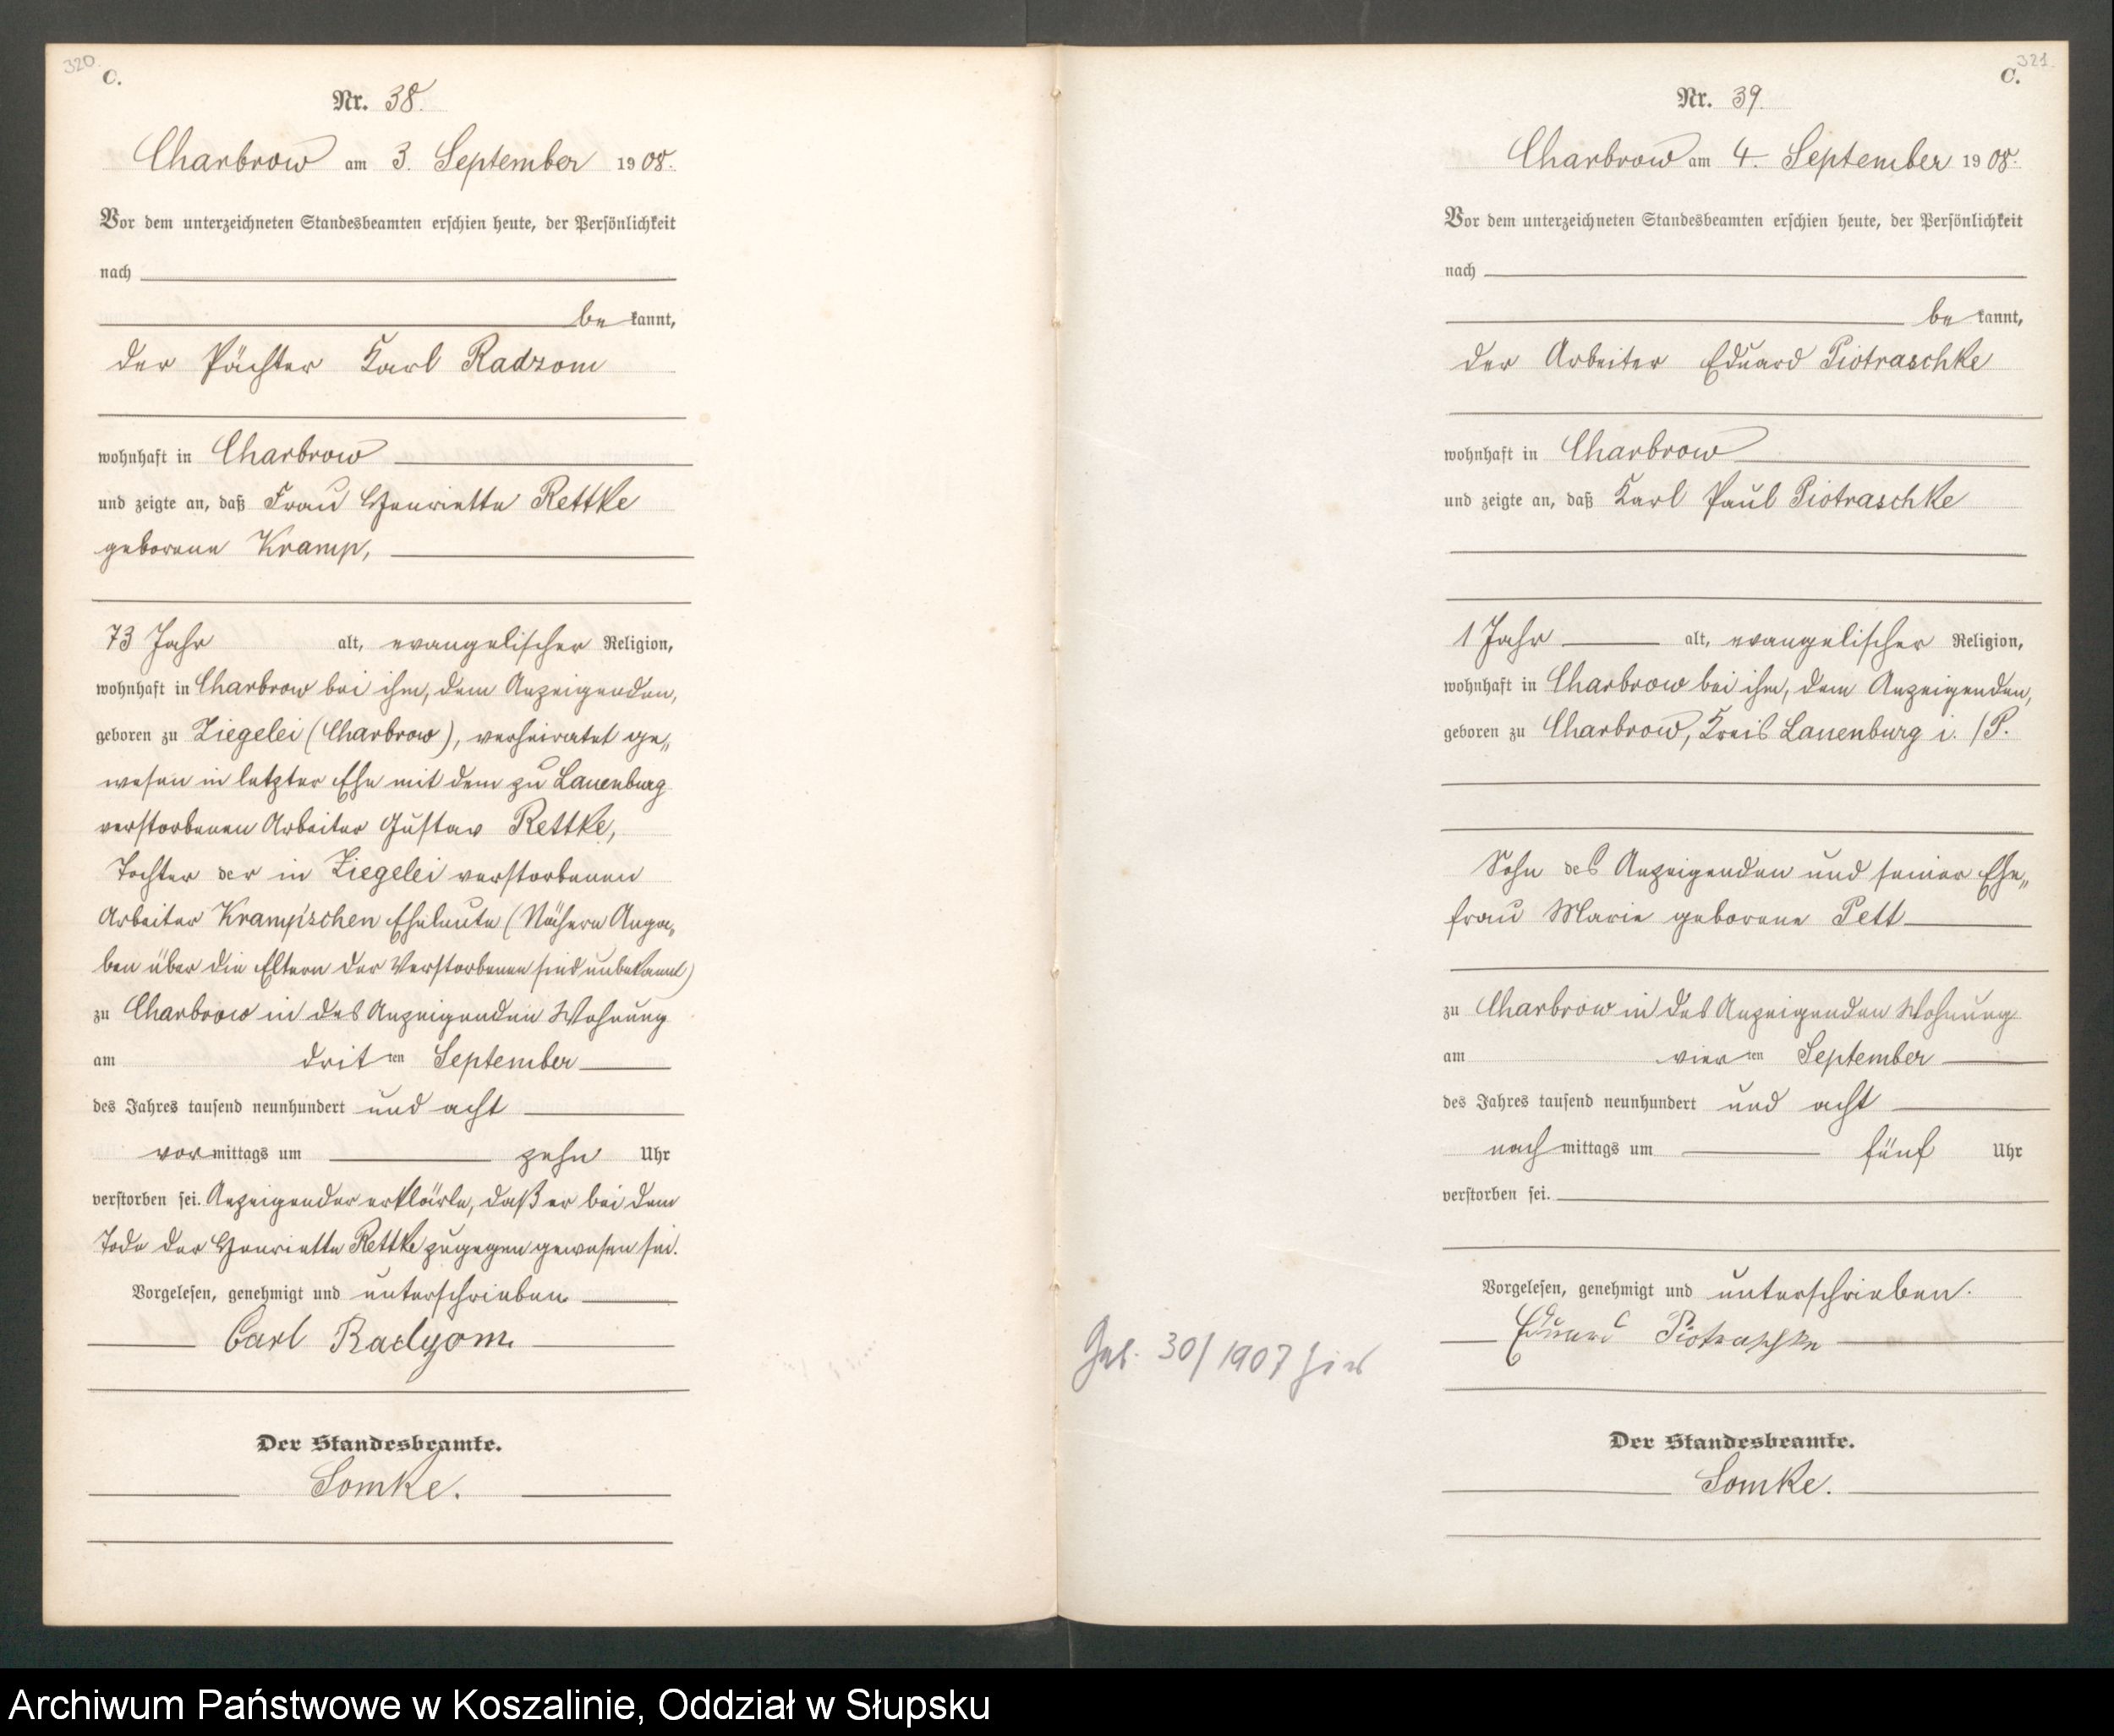 320.
C.
Nr. 38.
Charbrow am 3. September 1908.
Vor dem unterzeichneten Standesbeamten erschien heute, der Persönlichkeit
nach
bekannt,
der Pächter Karl Radzom
wohnhaft in Charbrow
und zeigte an, daß Frau Henriette Rettke
geborene Kramp,
73 Jahr alt, evangelischer Religion,
wohnhaft in Charbrow bei ihm, dem Anzeigenden,
geboren zu Ziegelei (Charbrow), verheiratet ge„
wesen in letzter Ehe mit dem zu Lauenburg
verstorbenen Arbeiter Gustav Rettke,
Tochter der in Ziegelei verstorbenen
Arbeiter Kramp'schen Eheleute (Nähere Anga„
ben über die Eltern der Verstorbenen sind unbekannt)
zu Charbrow in des Anzeigenden Wohnung
am dritten September
des Jahres tausend neunhundert und acht
vormittags um zehn Uhr
verstorben sei. Anzeigender erklärte, daß er bei dem
Tode der Henriette Rettke zugegen gewesen sei.
Vorgelesen, genehmigt und unterschrieben
Carl Radzom.
Der Standesbeamte.
Somke.
321.
C.
Nr. 39.
Charbrow am 4. September 1908.
Vor dem unterzeichneten Standesbeamten erschien heute, der Persönlichkeit
nach
bekannt,
der Arbeiter Eduard Piotraschke
wohnhaft in Charbrow
und zeigte an, daß Karl Paul Piotraschke
1 Jahr alt, evangelischer Religion,
wohnhaft in Charbrow bei ihm, dem Anzeigenden,
geboren zu Charbrow, Kreis Lauenburg i. /P.
Sohn des Anzeigenden und seiner Ehe„
frau Marie geborene Pett
zu Charbrow in des Anzeigenden Wohnung
am vierten September
des Jahres tausend neunhundert und acht
nachmittags um fünf Uhr
verstorben sei.
Vorgelesen, genehmigt und unterschrieben.
Eduard Piotraschke
Geb. 30/1907 hier
Der Standesbeamte.
Somke.
Archiwum Państwowe w Koszalinie, Oddział w Słupsku